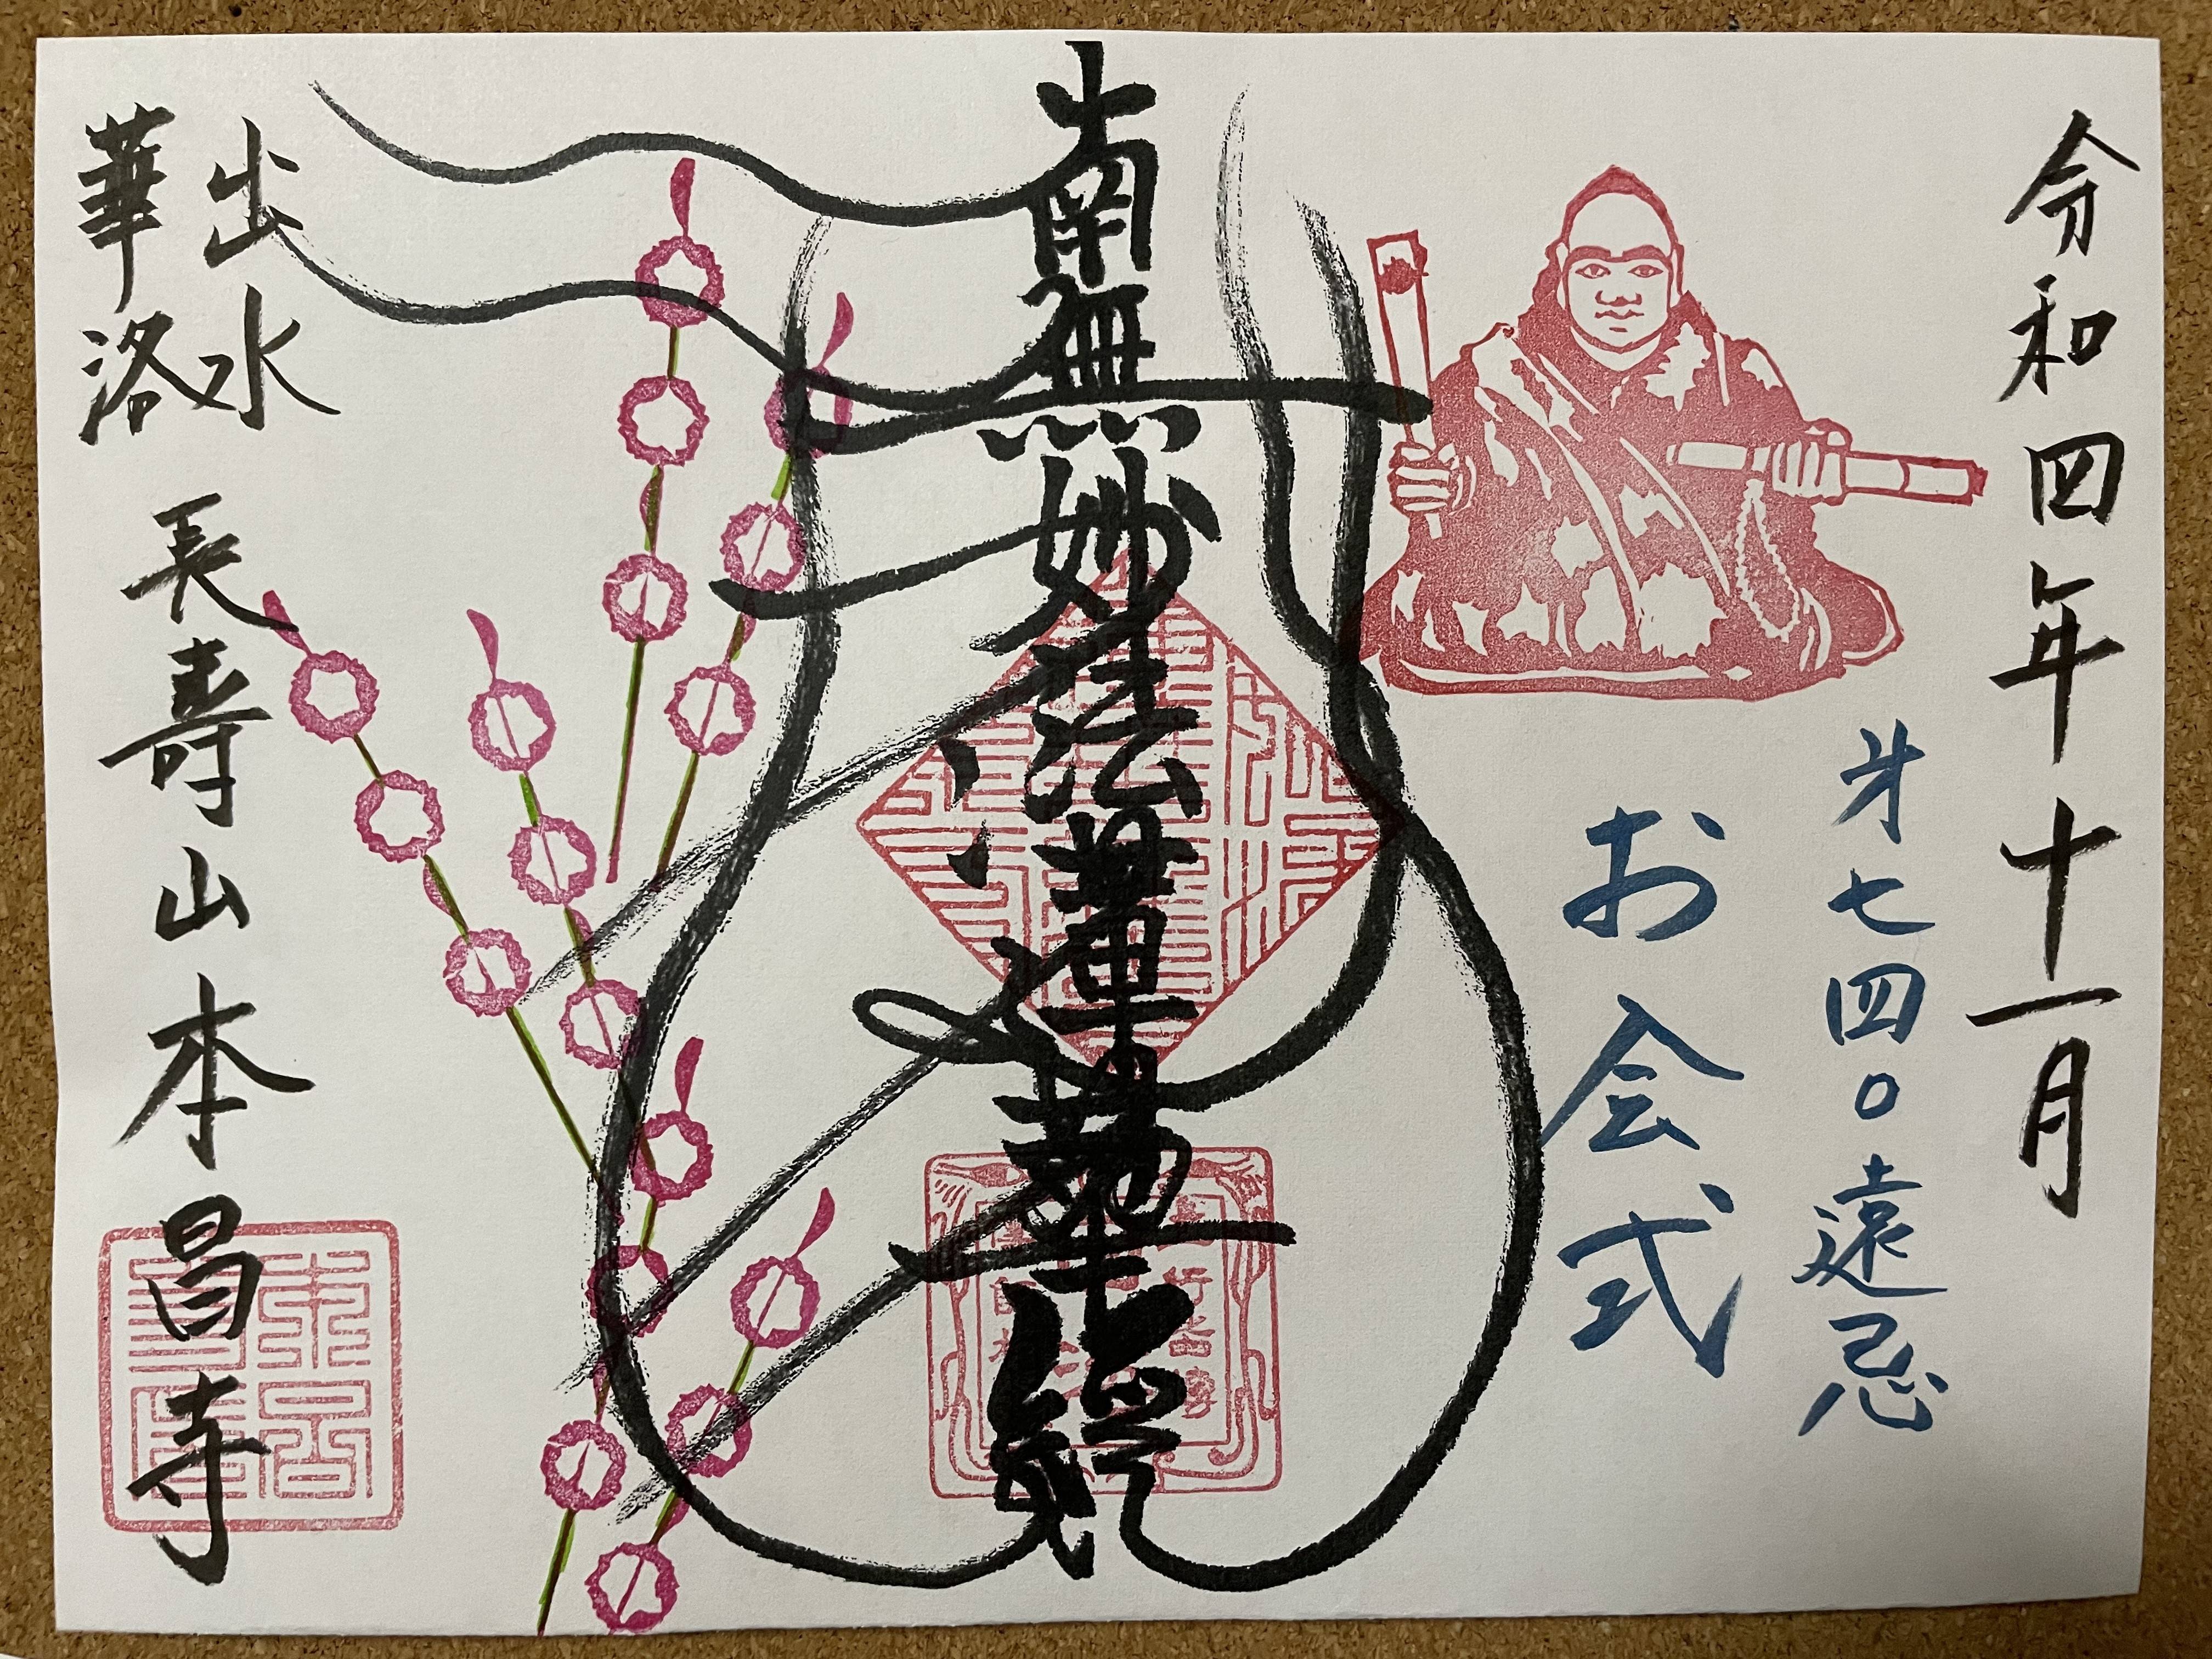 令和四年十一月
㐧七四〇遠忌
お会式
南無妙法蓮華経
出水
華洛
長寿山本昌寺